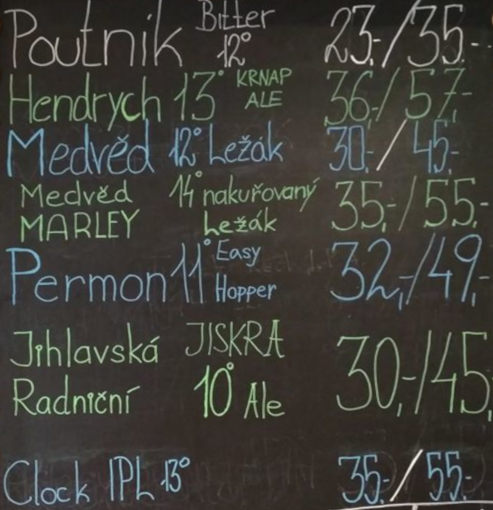 Poutník Bitter 12° 23,-/35.-
Hendrych 13° KRNAP ALE 36,-/57,-
Medvěd 12° Ležák 30,-/45,-
Medvěd MARLEY 14° nakuřovaný Ležák 35,-/55,-
Permon 11° Easy Hopper 32,-/49,-
Jihlavská Radniční JISKRA 10° Ale 30,-/45,
Clock IPL 13° 35,-/55,-